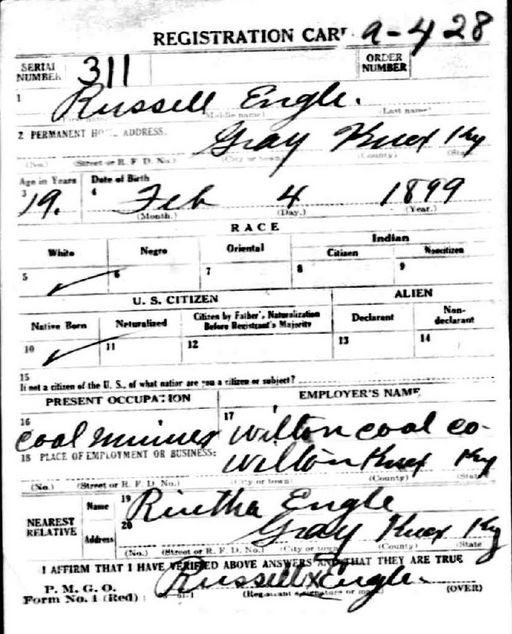 REGISTRATION CARD A-4 28
SERIAL NUMBER 311 ORDER NUMBER
1 Russell Engle.
(Middle name) (Last name)
2 PERMANENT HOME ADDRESS.
Gray Knox Ky
(No.) (Street or R. F. D. No.) (City or town) (County) (State)
Age in Years Date of Birth
3 19. 4 Feb 4 1899
(Month.) (Day.) (Year.)
RACE
White Negro Oriental Indian
Citizen Noncitizen
5 ✓ 6 7 8 9
U. S. CITIZEN ALIEN
Native Born Naturalized Citizen by Father's Naturalization Before Registrant's Majority Declarant Non-declarant
10 ✓ 11 12 13 14
15
If not a citizen of the U. S., of what nation are you a citizen or subject?
PRESENT OCCUPATION EMPLOYER'S NAME
16 Coal miner 17 Wilton Coal Co-
18 PLACE OF EMPLOYMENT OR BUSINESS: Wilton Knox Ky
(No.) (Street or R. F. D. No.) (City or town) (County) (State)
NEAREST RELATIVE
Name 19 Rintha Engle
Address 20 Gray Knox Ky
(No.) (Street or R. F. D. No.) (City or town) (County) (State)
I AFFIRM THAT I HAVE VERIFIED ABOVE ANSWERS AND THAT THEY ARE TRUE
P. M. G. O.
Form No. 1 (Red) Russell X Engle.
(Registrant's signature or mark) (OVER)